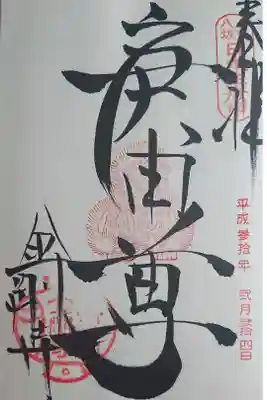 奉拝
八坂
平成参拾年 弐月弐拾四日
庚申尊
金剛寺